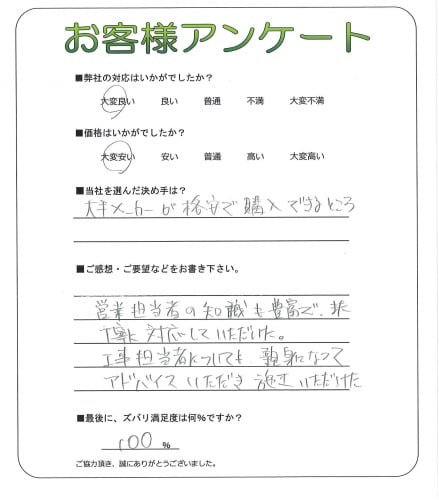 お客様アンケート
■弊社の対応はいかがでしたか？
大変良い 良い 普通 不満 大変不満
■価格はいかがでしたか？
大変安い 安い 普通 高い 大変高い
■当社を選んだ決め手は？
大手メーカーが格安で購入できるところ
■ご感想・ご要望などをお書き下さい。
営業担当者の知識も豊富で、又
丁寧に対応していただけた。
工事担当者についても、親身になって
アドバイスいただき施工いただけた
■最後に、ズバリ満足度は何％ですか？
100 %
ご協力頂き、誠にありがとうございました。